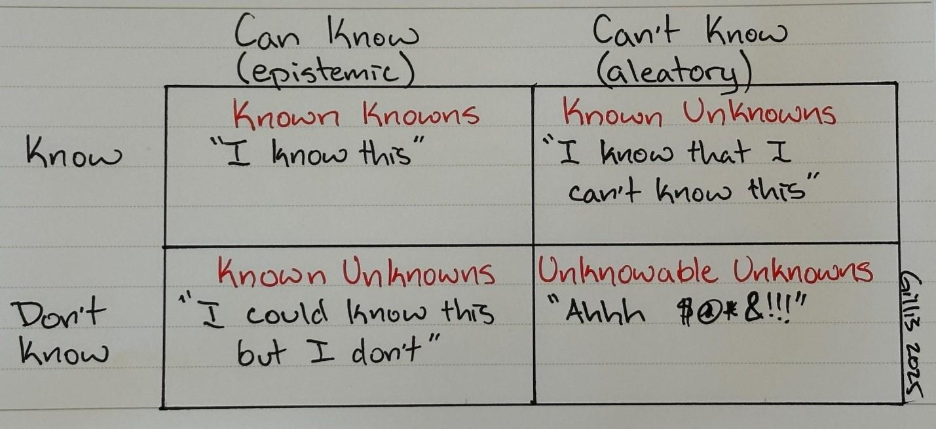 Can Know
(epistemic)
Can't Know
(aleatory)
Know
Known Knowns
"I know this"
Known Unknowns
"I know that I
can't know this"
Don't
Know
Known Unknowns
"I could know this
but I don't"
Unknowable Unknowns
"Ahhh $@*&!!!"
Gillis 2025